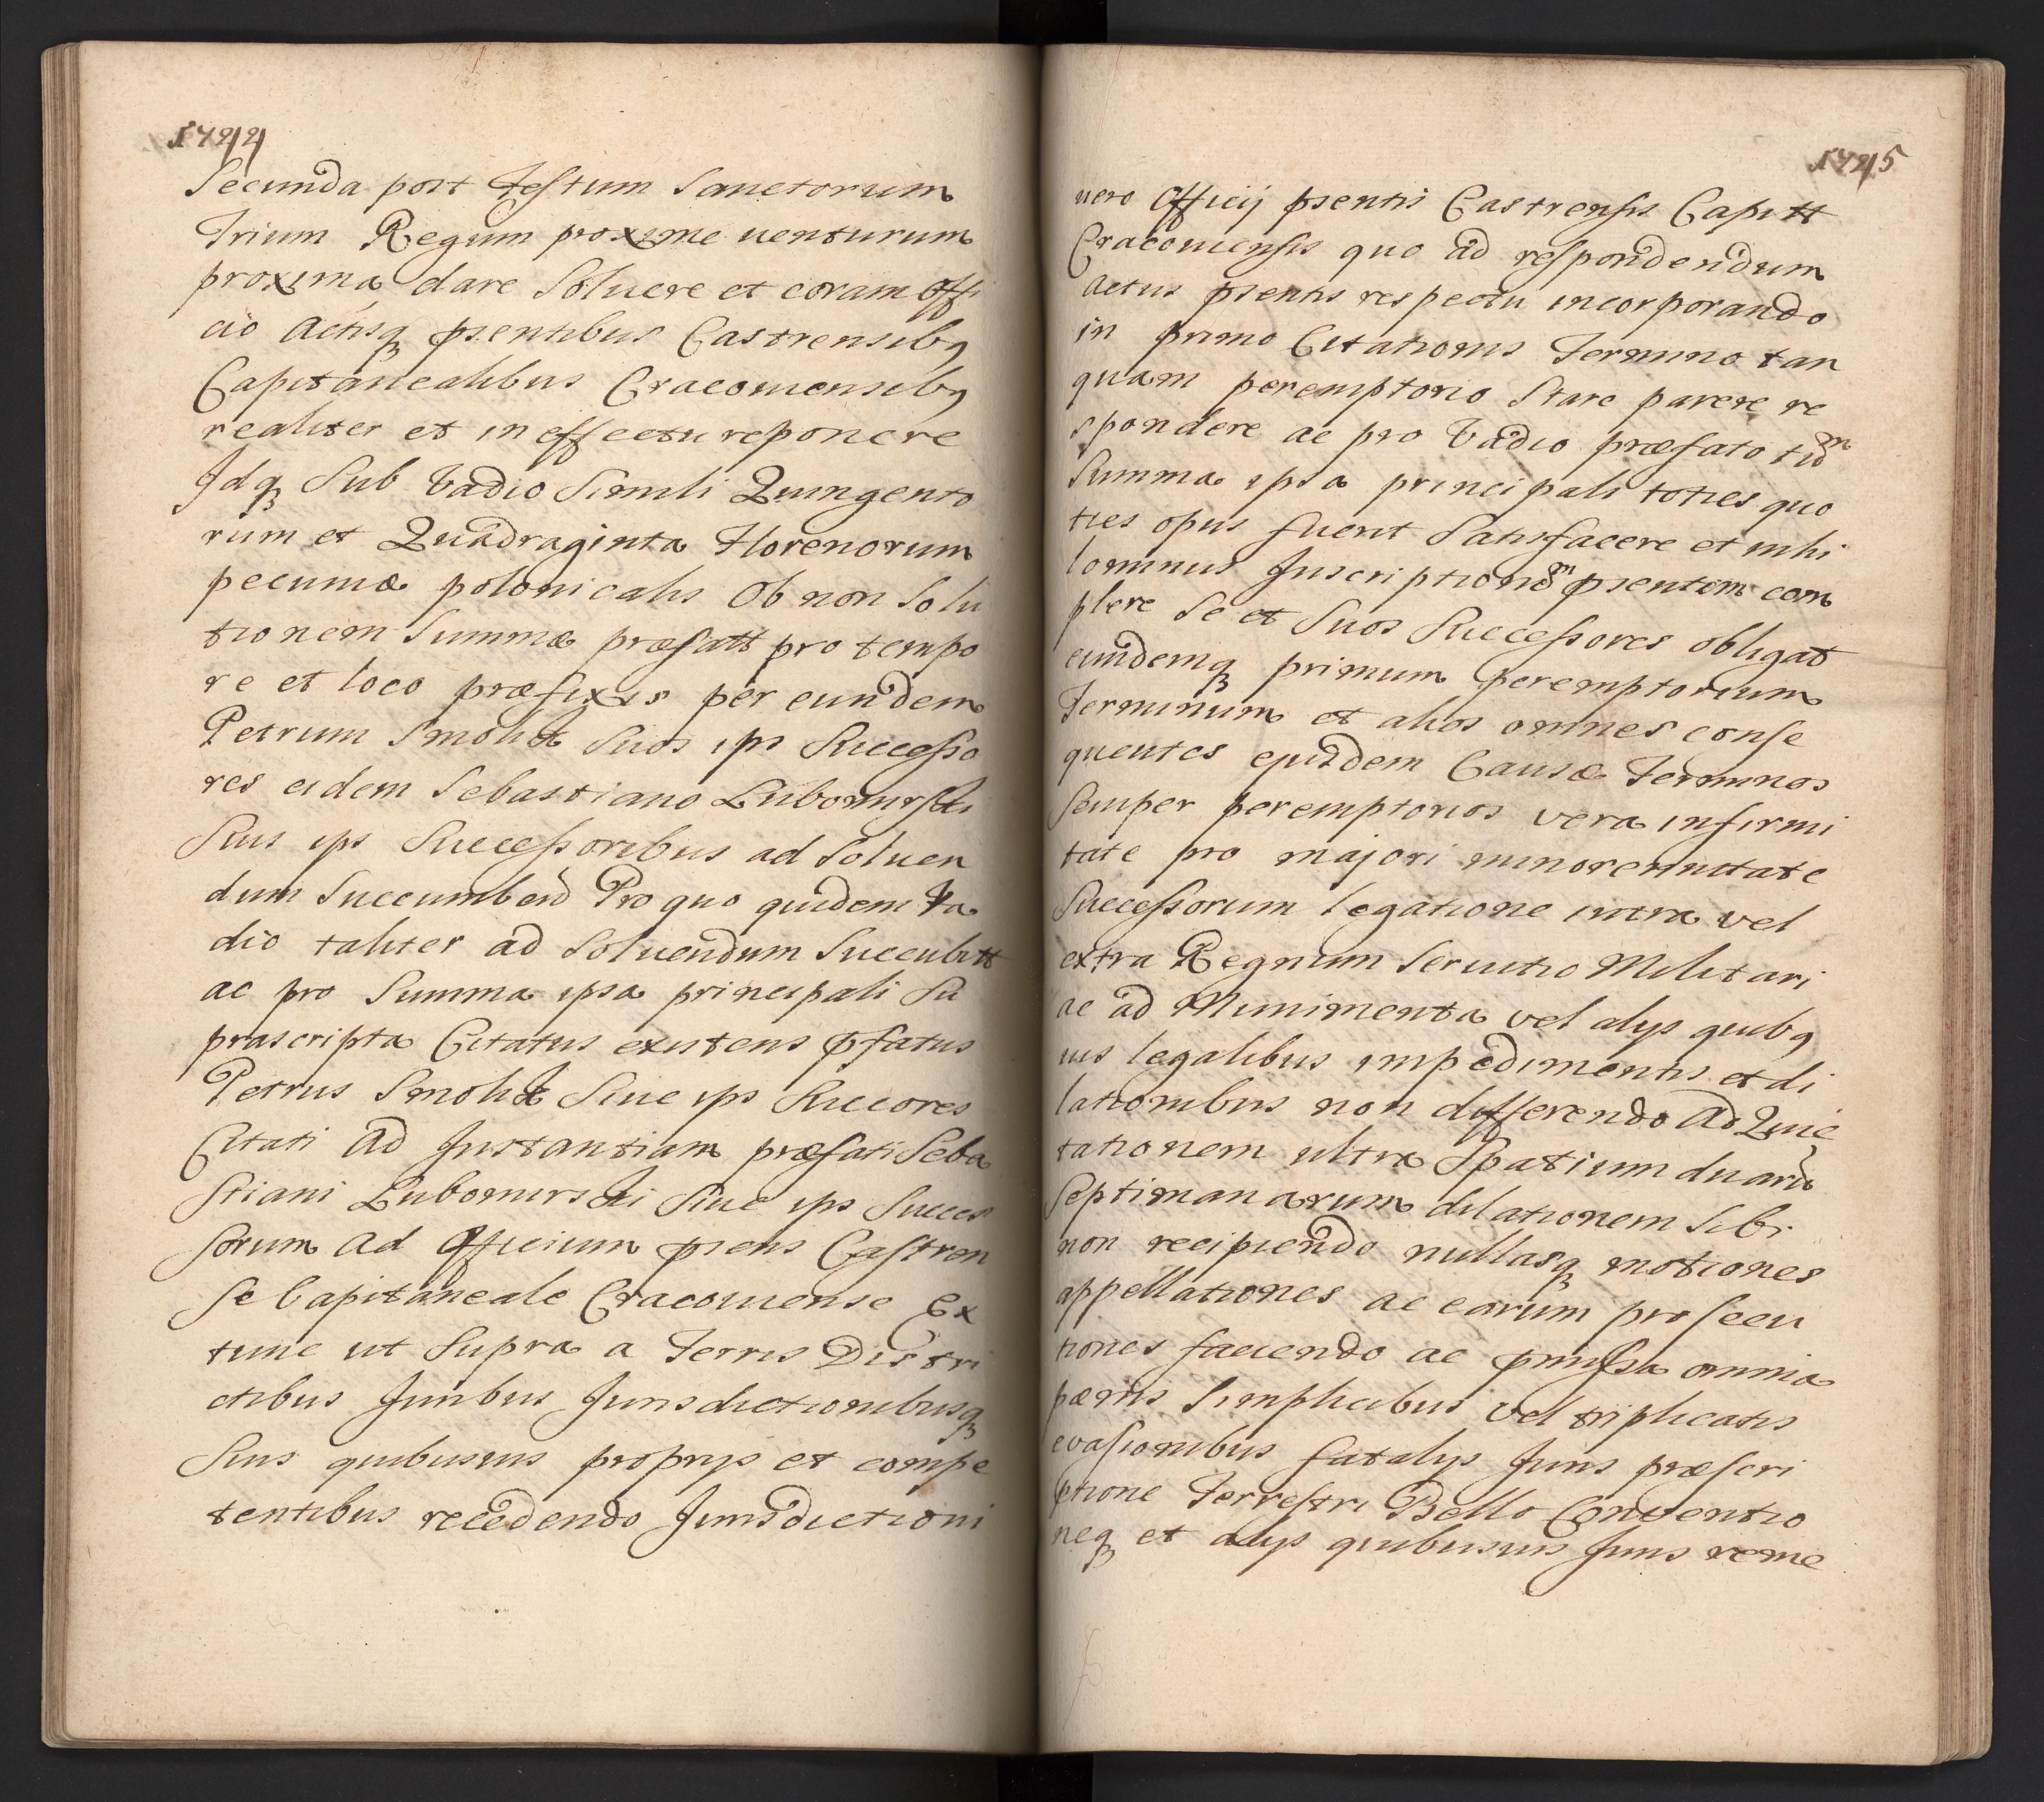 1724
Secunda post Festum Sanctorum
Trium Regum proxime venturum
proxima dare Soluere et coram Offi
cio Actisq psentibus Castrensibq
Capitanealibus Cracouiensibq
realiter et in effectu reponere
Idq Sub Vadio Simili Quingento
rum et Quadraginta Florenorum
pecuniæ polonicalis Ob non Solu
tionem Summæ præfatt pro tempo
re et loco præfixis per eundem
Petrum Smolik Suos ips Successo
res eidem Sebastiano Lubomirski
Suis ips Successoribus ad Soluen
dum Succumbend Pro quo quidem Va
dio taliter ad Soluendum Succubitt
ac pro Summa ipsa principali Su
prascripta Citatus existens pfatus
Petrus Smolik Siue ips Succores
Citati Ad Instantiam præfati Seba
Stiani Lubomirski Siue ips Succes
sorum Ad Officium psens Castren
Se Capitaneale Cracouiense Ex
tunc ut Supra a Terris Distri
ctibus Juribus Jurisdictionibusq
Suis quibusuis proprys et compe
tentibus recedendo Jurisdictioni
1725
uero Officij psentis Castrensis Capitt
Cracouiensis quo ad respondendum
Actus psentis respectu incorporando
in primo Citationis Termino tan
quam peremptorio Stare parere re
spondere ac pro Vadio præfato tid
Summa ipsa principali toties quo
ties opus fuerit Satisfacere et nihi
lominus Inscriptionem psentem com
plere Se et Suos Successores obligat
eundemq primum peremptorium
Terminum et alios omnes conse
quentes eiusdem Causæ Terminos
Semper peremptorios vera infirmi
tate pro majori minorennitate
Successorum legatione intra vel
extra Regnum Seruitio Militari
ac ad Munimenta vel alys quibq
uis legalibus impedimentis et di
lationibus non differendo Ad Quie
tationem ultra Spatium duaru
Septimanarum dilationem Sibi
non recipiendo nullasq motiones
appellationes ac earum prosecu
tiones faciendo ac pmissa omnia
pænis Simplicibus vel triplicatis
evasionibus fatalys Juris præscri
ptione Terrestri Bello Conventio
neq et alys quibusuis Juris reme